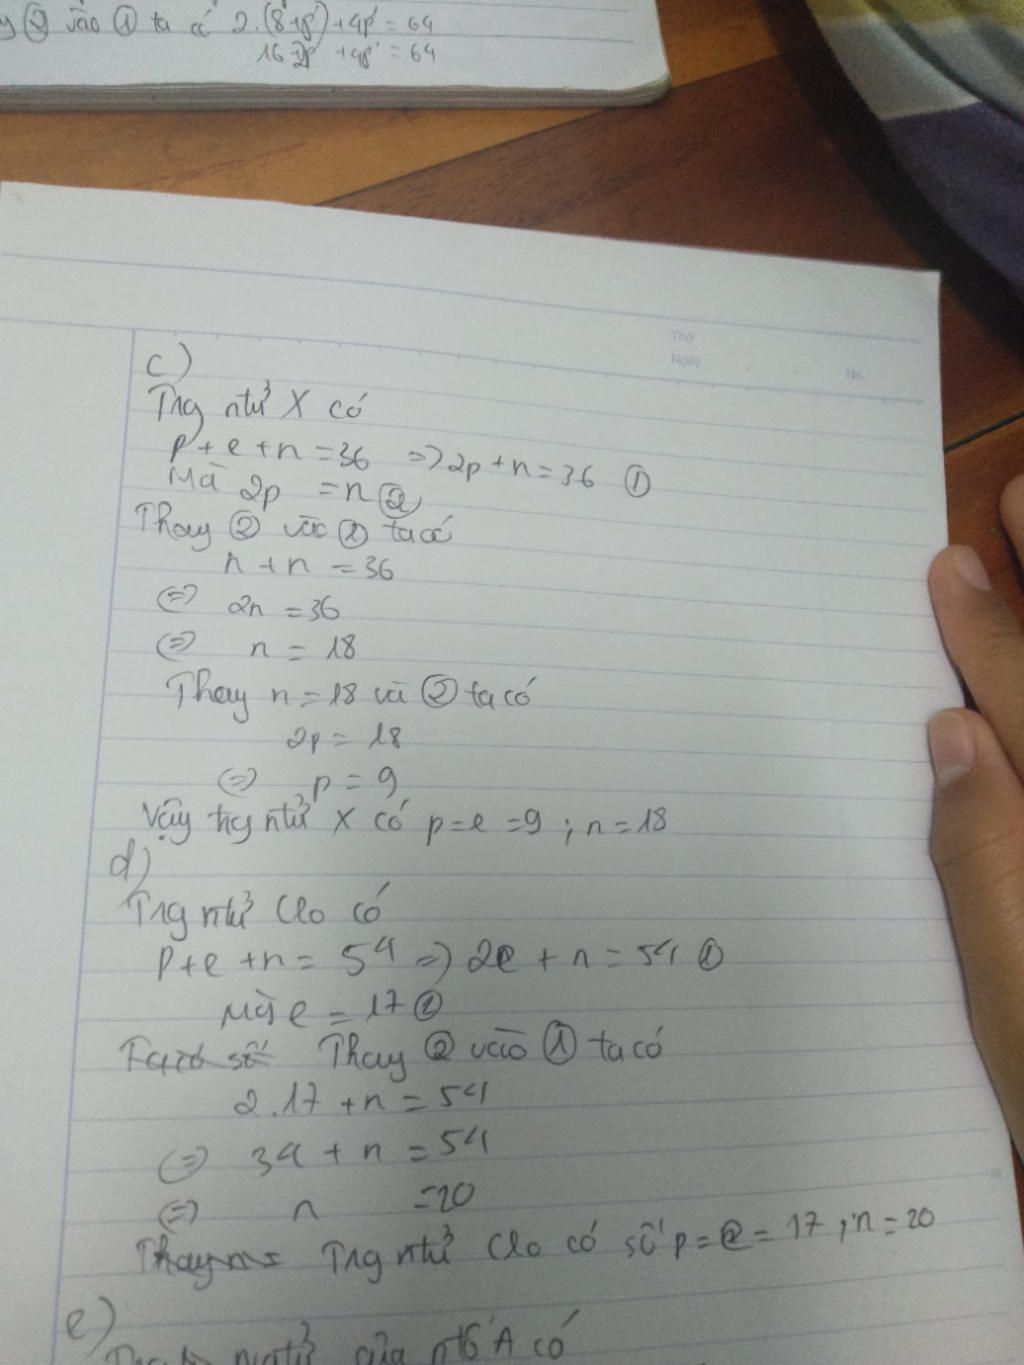 ② vào ① ta có 2.(8+p')+4p' = 64
16 2p' +4p' = 64
Thứ
Ngày
No.
c)
Trg ntử X có
p+e+n=36 => 2p+n=36 ①
Mà 2p = n ②
Thay ② vào ① ta có
n+n = 36
<=> 2n = 36
<=> n = 18
Thay n=18 và ② ta có
2p = 18
<=> p = 9
Vậy trg ntử X có p=e=9 ; n=18
d)
Trg ntử Clo có
p+e+n = 54 => 2e + n = 54 ①
Mà e = 17 ②
Ta có số Thay ② vào ① ta có
2.17 +n = 54
<=> 34 + n = 54
<=> n =20
Thay Trg ntử Clo có số p=e=17 ; n=20
e)
của ntố A có